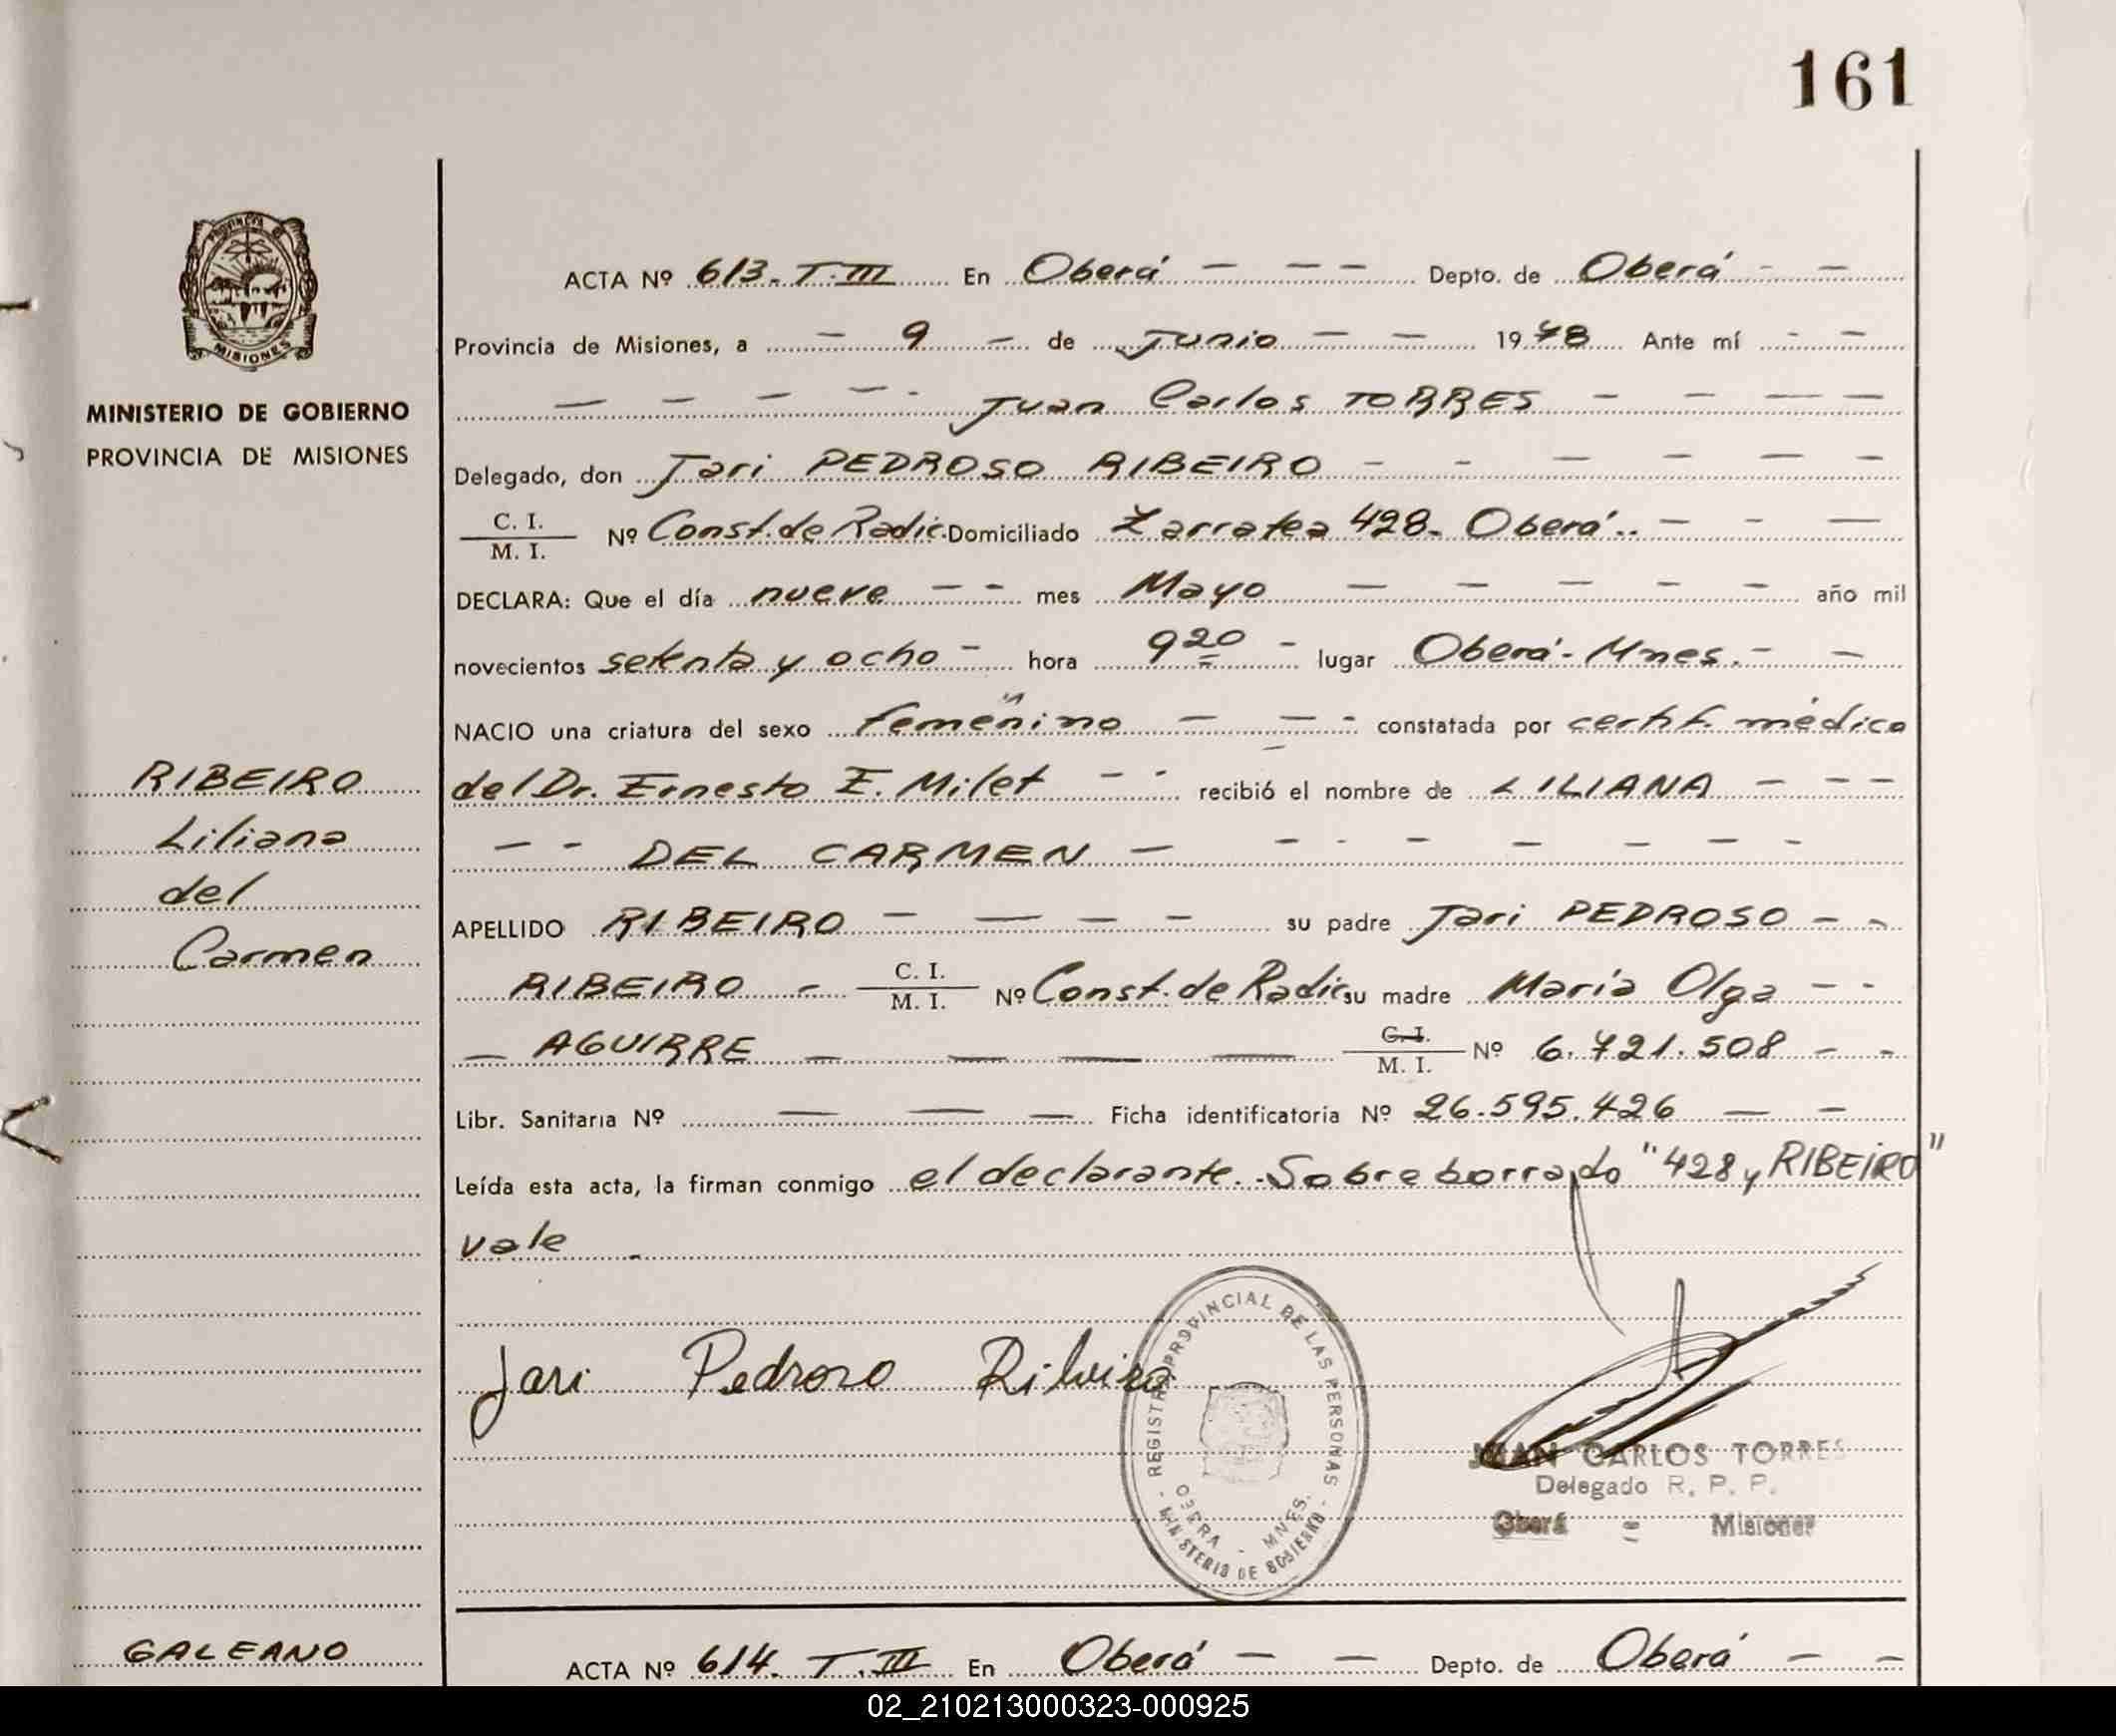 161
PROVINCIA DE
MISIONES
MINISTERIO DE GOBIERNO
PROVINCIA DE MISIONES
RIBEIRO
Liliana
del
Carmen
ACTA Nº 613. T. III En Oberá - - - Depto. de Oberá - -
Provincia de Misiones, a - 9 - de Junio - - 1978 Ante mí - -
- - - - - Juan Carlos TORRES - - - -
Delegado, don Jari PEDROSO RIBEIRO - - - - - -
C. I. / M. I. Nº Const. de Radic. Domiciliado Zarratea 428. Oberá.. - - -
DECLARA: Que el día nueve - - mes Mayo - - - - - año mil
novecientos setenta y ocho - hora 9 20 - lugar Oberá - Mnes. - -
NACIO una criatura del sexo femenino - - - constatada por certif. médico
del Dr. Ernesto E. Milet - - recibió el nombre de LILIANA - - -
- - DEL CARMEN - - - - - - - -
APELLIDO RIBEIRO - - - - su padre Jari PEDROSO - -
RIBEIRO - C. I. / M. I. Nº Const. de Radic su madre María Olga - -
- AGUIRRE - - - - C. I. / M. I. Nº 6.721.508 - -
Libr. Sanitaria Nº - - - Ficha identificatoria Nº 26.595.426 - -
Leída esta acta, la firman conmigo el declarante. - Sobre borrado "428 y RIBEIRO"
vale .
Jari Pedroso Ribeiro
REGISTRO PROVINCIAL DE LAS PERSONAS
OBERA - MNES.
- MINISTERIO DE GOBIERNO -
JUAN CARLOS TORRES
Delegado R. P. P.
Oberá - Misiones
GALEANO
ACTA Nº 614. T. III En Oberá - - Depto. de Oberá - -
02_210213000323-000925